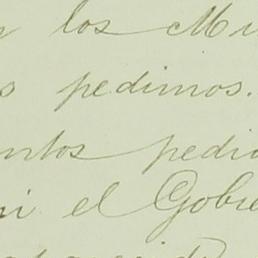 los Mi
s pedimos.
ntos pedi
ni el Gobie